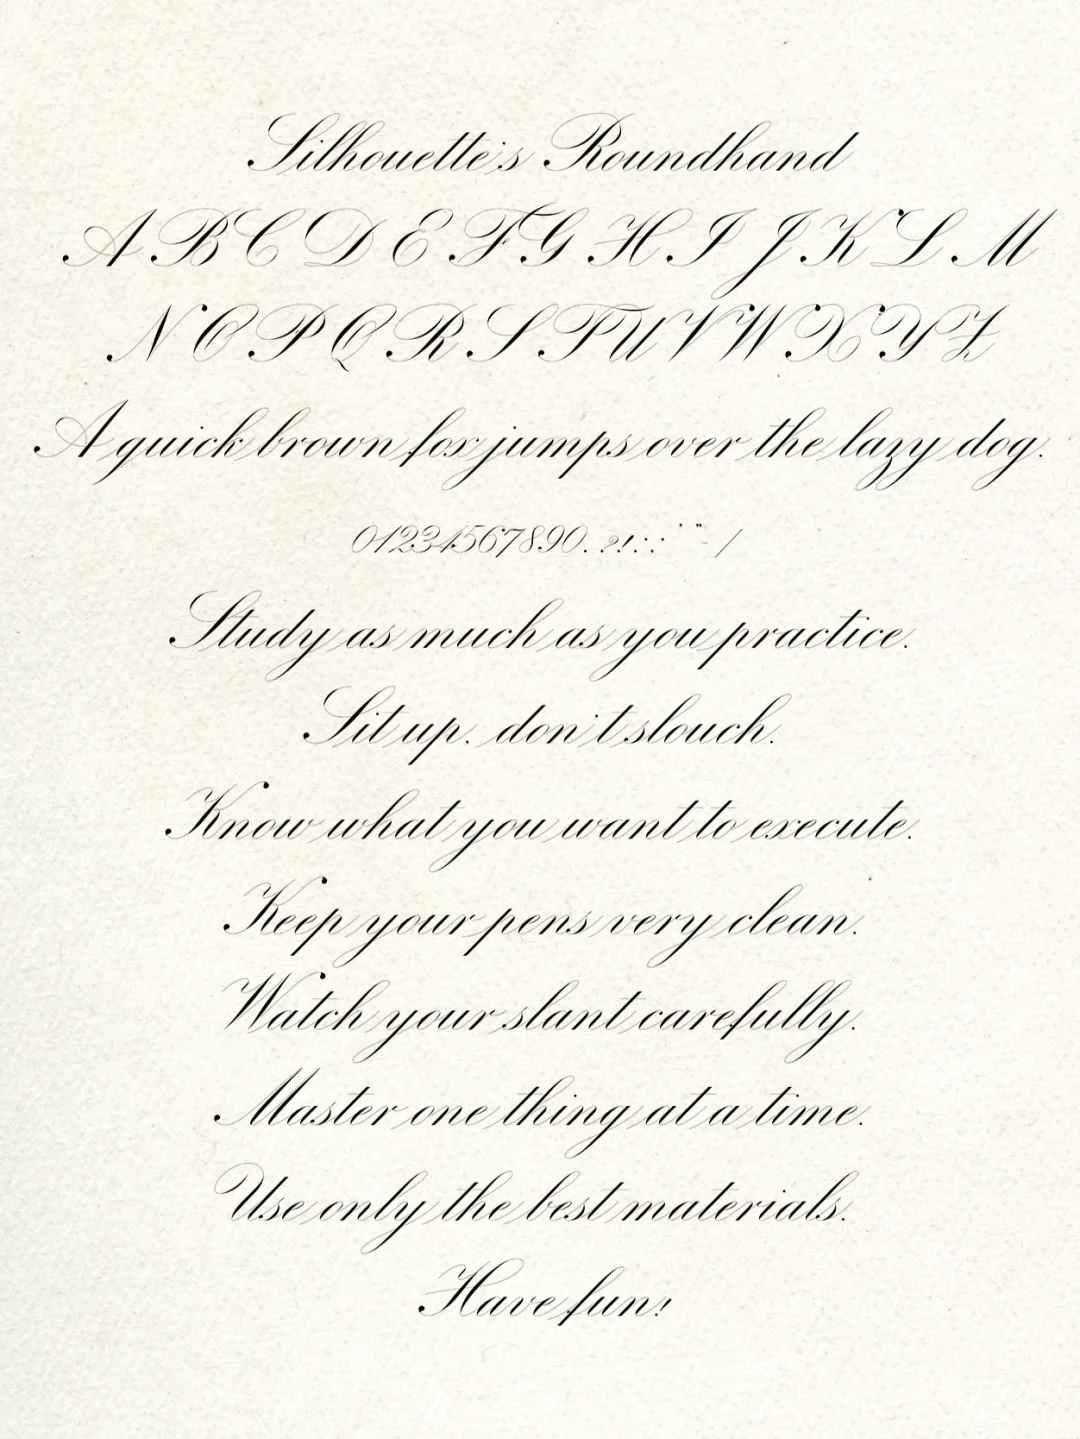 Silhouette's Roundhand
A B C D E F G H I J K L M
N O P Q R S T U V W X Y Z
A quick brown fox jumps over the lazy dog.
01234567890. ?!:; ' " - /
Study as much as you practice.
Sit up. don't slouch.
Know what you want to execute.
Keep your pens very clean.
Watch your slant carefully.
Master one thing at a time.
Use only the best materials.
Have fun!